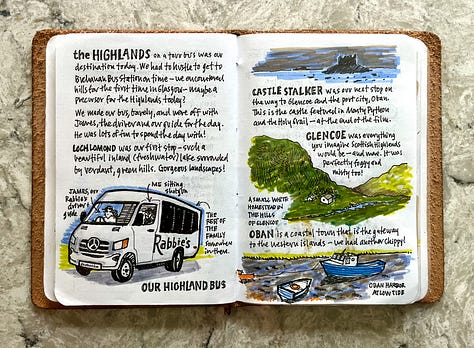 the HIGHLANDS on a tour bus was our
destination today. We had to hustle to get to
Buchanan Bus Station on time – we encountered
hills for the first time in Glasgow – maybe a
precursor for the Highlands today?
We made our bus, barely, and were off with
James, the driver and our guide for the day.
He was lots of fun to spend the day with!
LOCH LOMOND was our first stop – such a
beautiful inland (freshwater) lake surrounded
by verdant, green hills. Gorgeous landscapes!
JAMES, our
Rabbie's
driver &
guide
ME sitting
shotgun
THE
REST OF
THE
FAMILY
somewhere
in there.
Rabbie's
OUR HIGHLAND BUS
CASTLE STALKER was our next stop on
the way to Glencoe and the port city, Oban.
This is the castle featured in Monty Python
and the Holy Grail – at the end of the film.
GLENCOE was everything
you imagine Scottish Highlands
would be – and more. It was
perfectly foggy and
misty too!
A SMALL WHITE
HOMESTEAD IN
THE HILLS
OF GLENCOE
OBAN is a coastal town that is the gateway
to the western islands – we had another chippy!
OBAN HARBOR
AT LOW TIDE